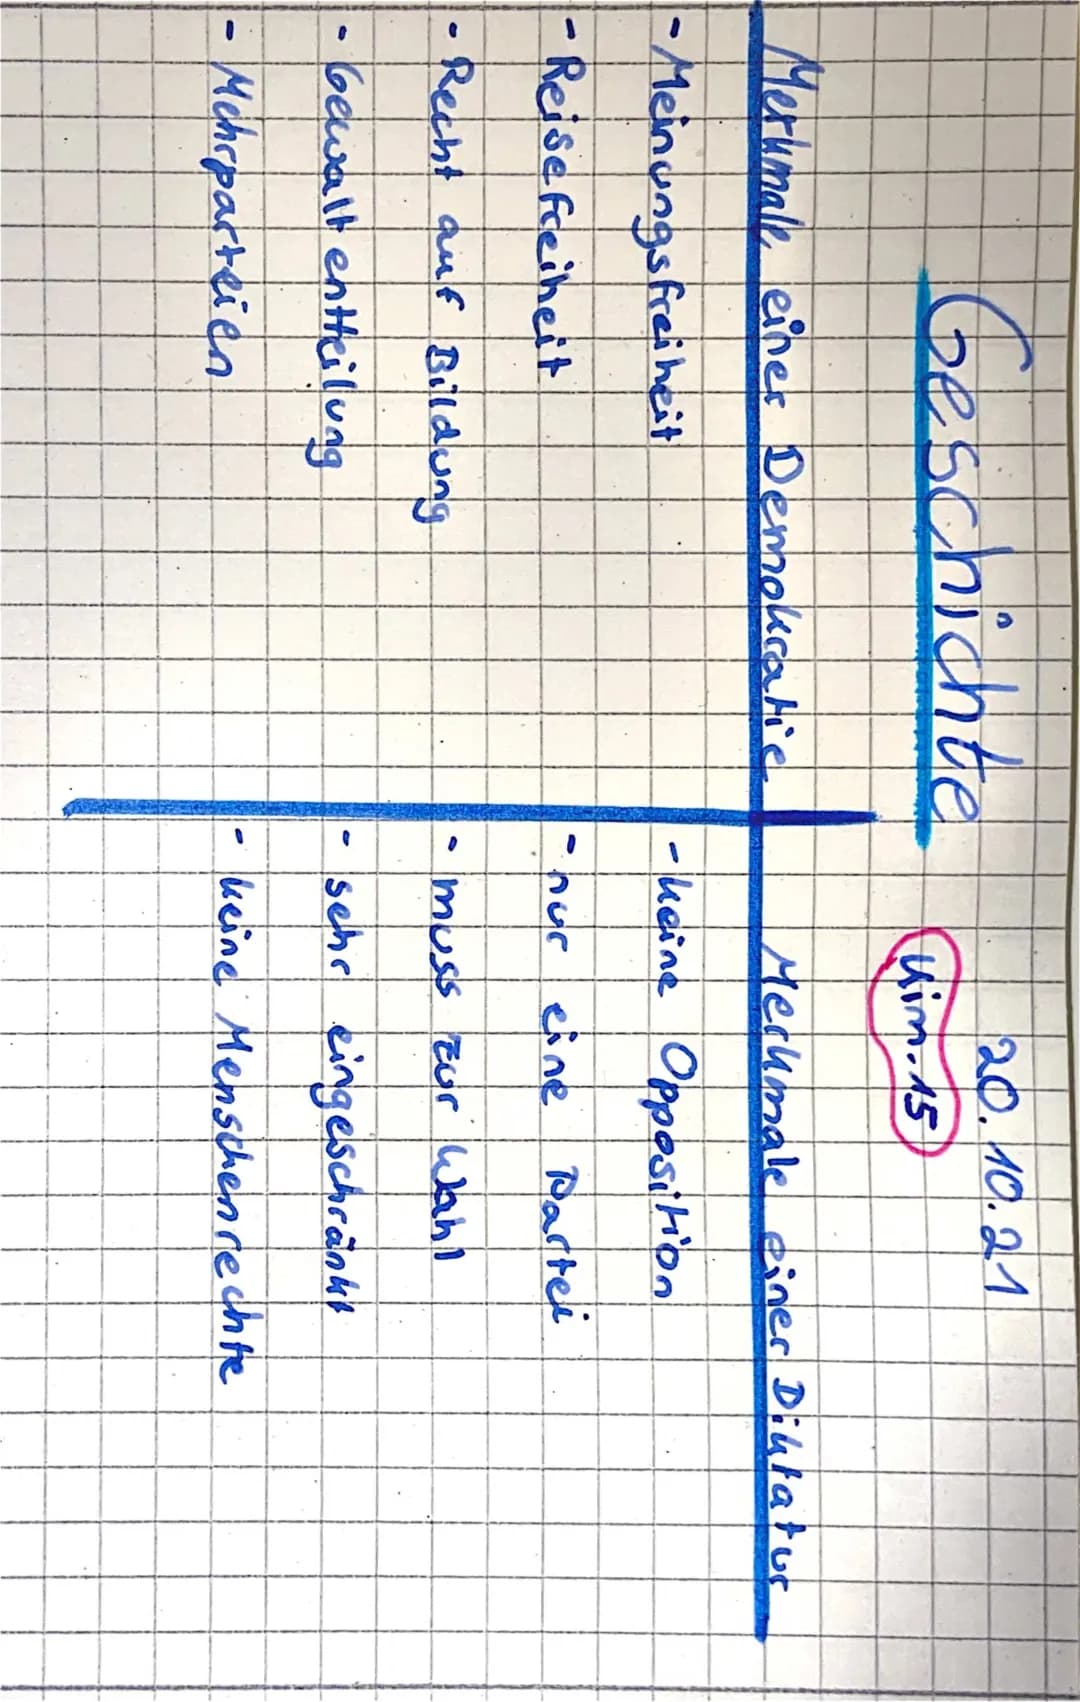 Geschichte
20.10.21
Kim.15
Merkmale einer Demokratie
Merkmale einer Diktatur
- Meinungsfreiheit
- keine Opposition
- Reisefreiheit
- nur eine Partei
- Recht auf Bildung
- muss zur Wahl
- Gewaltentteilung
- sehr eingeschränkt
- Mehrparteien
- keine Menschenrechte